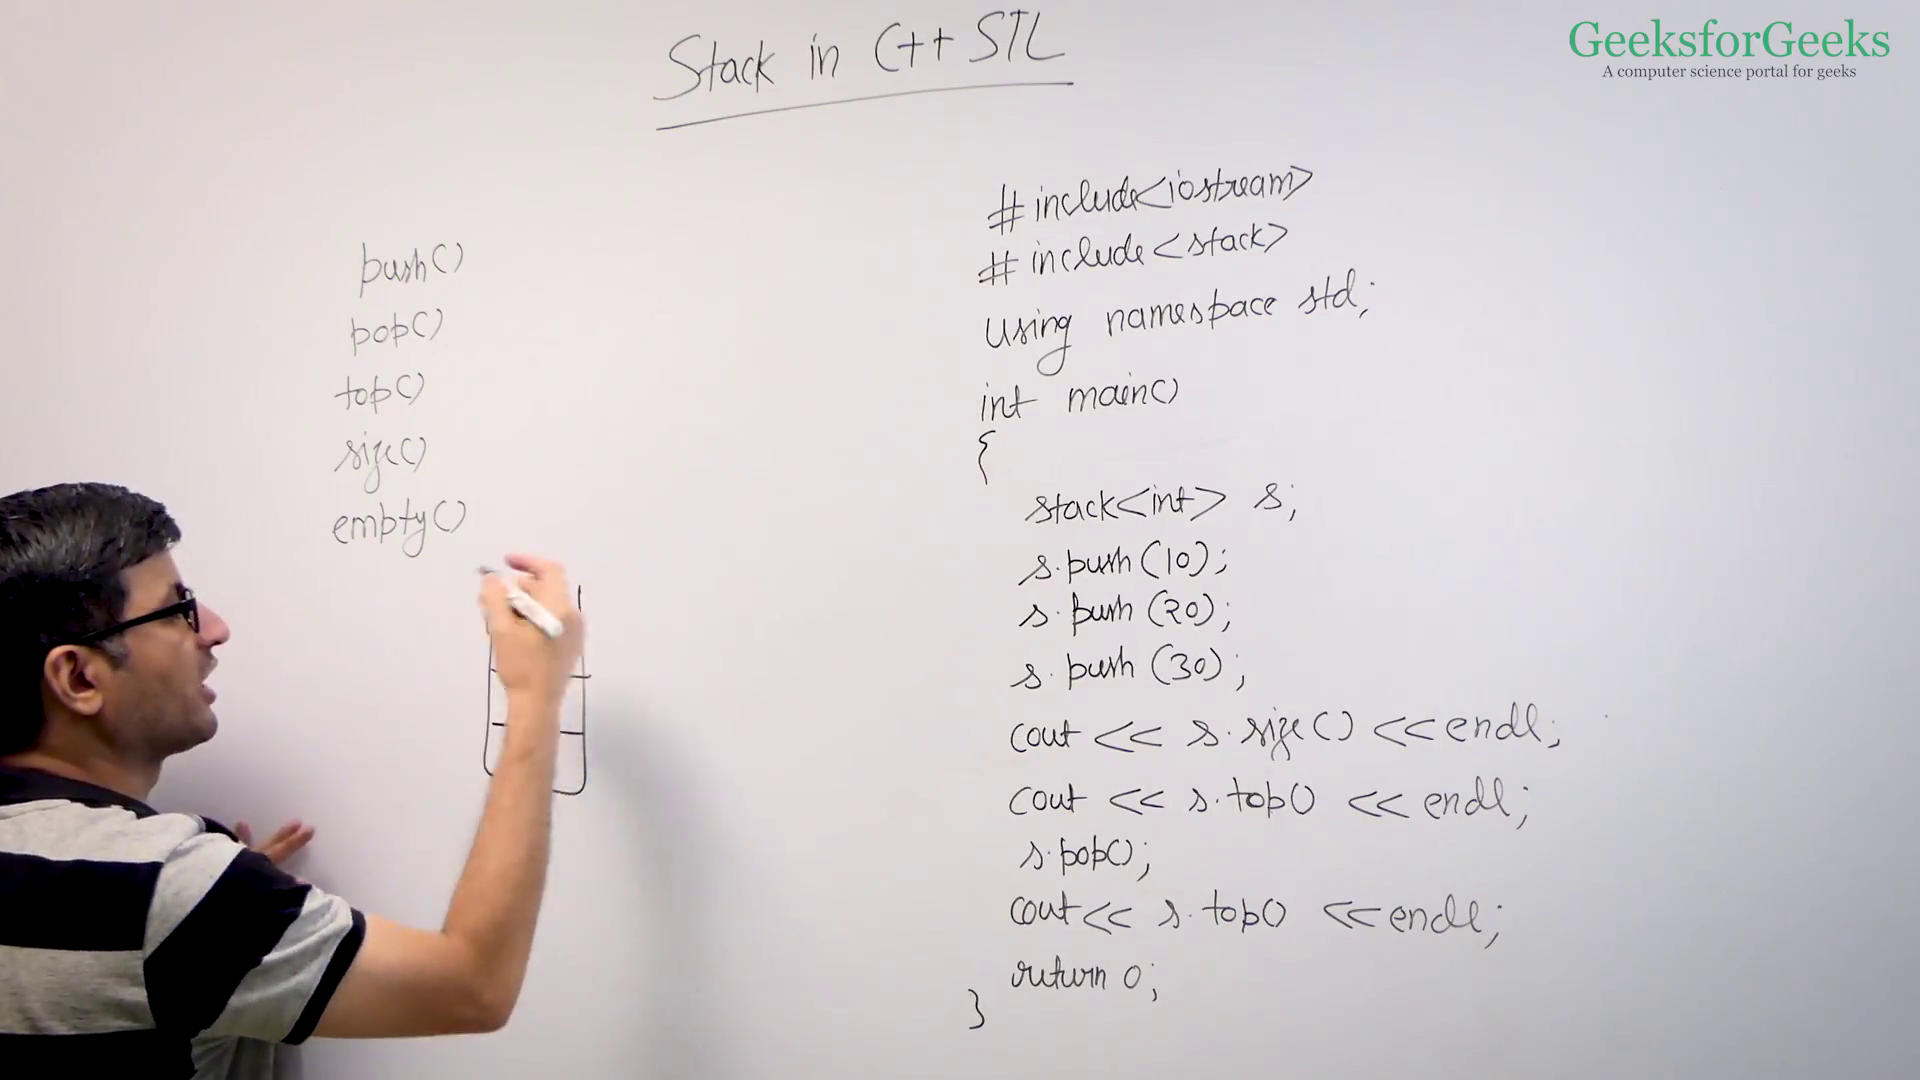 GeeksforGeeks
A computer science portal for geeks
Stack in C++ STL
push()
pop()
top()
size()
empty()
#include<iostream>
#include<stack>
using namespace std;
int main()
{
stack<int> s;
s.push(10);
s.push(20);
s.push(30);
cout << s.size() <<endl;
cout << s.top() << endl;
s.pop();
cout<< s.top() <<endl;
return 0;
}